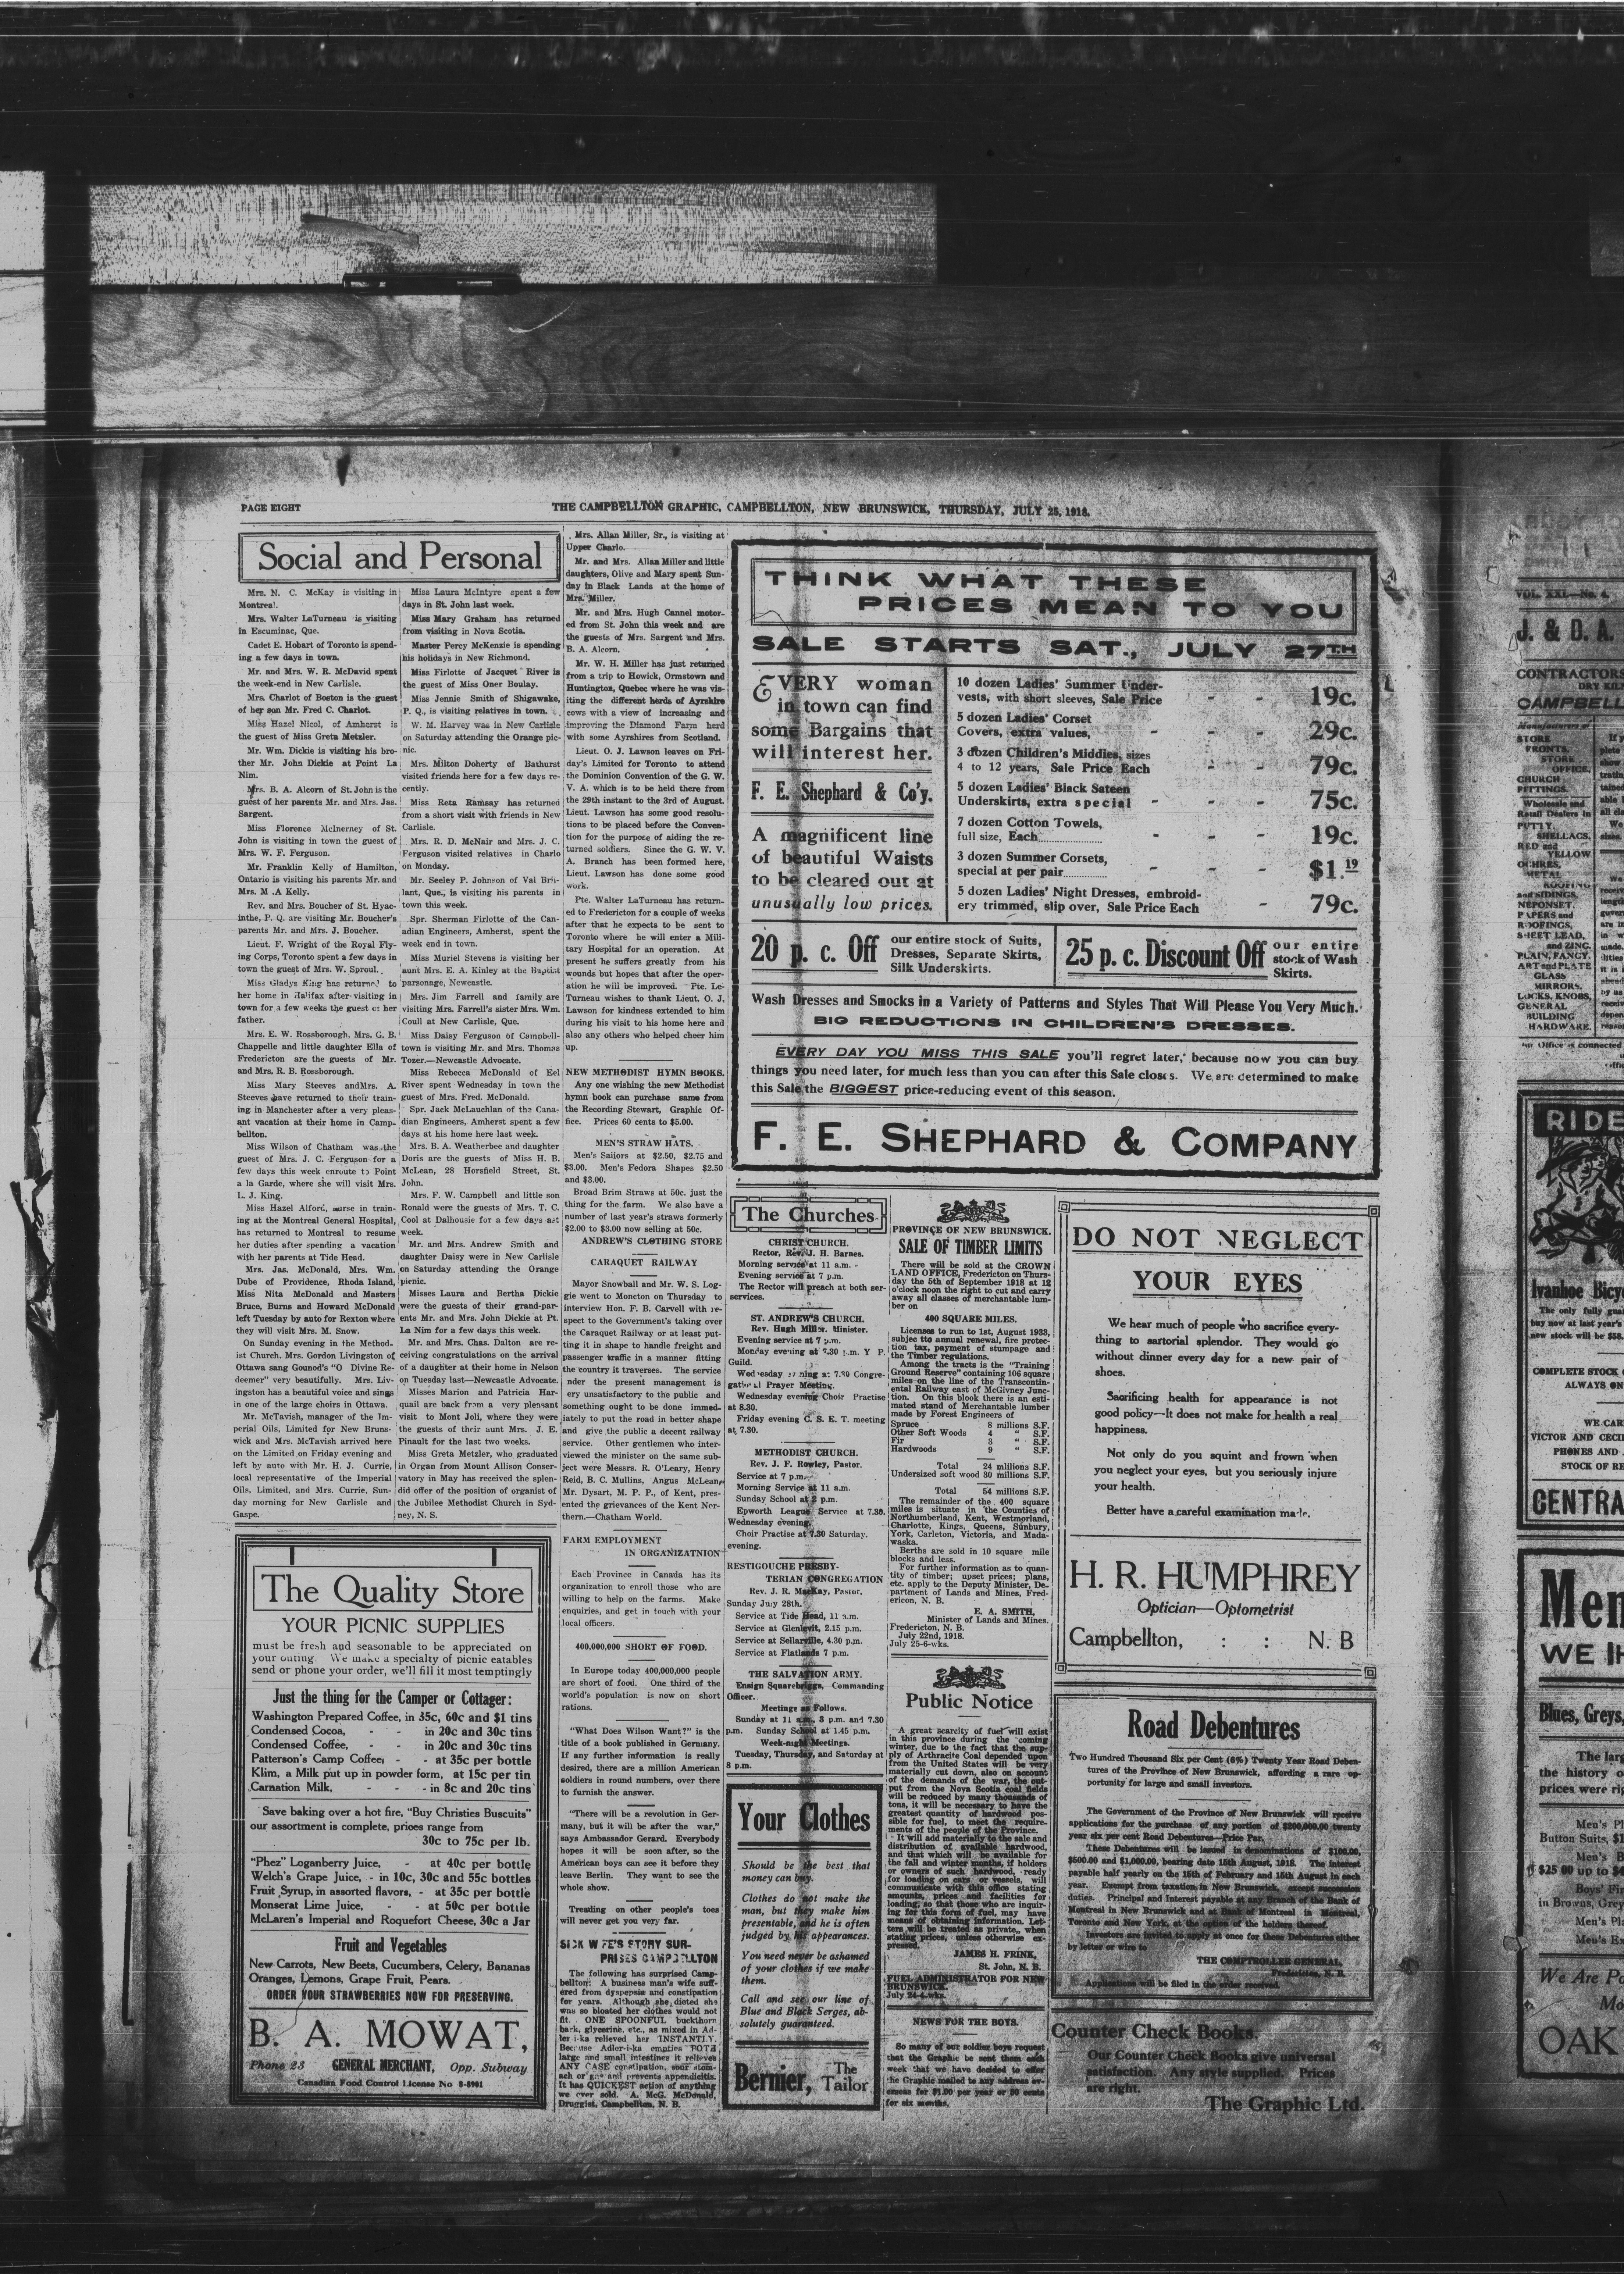 PAGE EIGHT
THE CAMPBELLTON GRAPHIC, CAMPBELLTON, NEW BRUNSWICK, THURSDAY, JULY 25, 1918.
Social and Personal
Mrs. N. C. McKay is visiting in
Montreal.
Mrs. Walter LaTurneau is visiting
in Escuminac, Que.
Cadet E. Hobart of Toronto is spend-
ing a few days in town.
Mr. and Mrs. W. R. McDavid spent
the week-end in New Carlisle.
Mrs. Charlot of Boston is the guest
of her son Mr. Fred C. Charlot.
Miss Hazel Nicol, of Amherst is
the guest of Miss Greta Metzler.
Mr. Wm. Dickie is visiting his bro-
ther Mr. John Dickie at Point La
Nim.
Mrs. B. A. Alcorn of St. John is the
guest of her parents Mr. and Mrs. Jas.
Sargent.
Miss Florence McInerney of St.
John is visiting in town the guest of
Mrs. W. F. Ferguson.
Mr. Franklin Kelly of Hamilton,
Ontario is visiting his parents Mr. and
Mrs. M .A Kelly.
Rev. and Mrs. Boucher of St. Hyac-
inthe, P. Q. are visiting Mr. Boucher's
parents Mr. and Mrs. J. Boucher.
Lieut. F. Wright of the Royal Fly-
ing Corps, Toronto spent a few days in
town the guest of Mrs. W. Sproul.
Miss Gladys King has returned to
her home in Halifax after visiting in
town for a few weeks the guest of her
father.
Mrs. E. W. Rossborough, Mrs. G. B.
Chappelle and little daughter Ella of
Fredericton are the guests of Mr.
and Mrs. R. B. Rossborough.
Miss Mary Steeves andMrs. A.
Steeves have returned to their train-
ing in Manchester after a very pleas-
ant vacation at their home in Camp-
bellton.
Miss Wilson of Chatham was the
guest of Mrs. J. C. Ferguson for a
few days this week enroute to Point
a la Garde, where she will visit Mrs.
L. J. King.
Miss Hazel Alford, nurse in train-
ing at the Montreal General Hospital,
has returned to Montreal to resume
her duties after spending a vacation
with her parents at Tide Head.
Mrs. Jas. McDonald, Mrs. Wm.
Dube of Providence, Rhoda Island,
Miss Nita McDonald and Masters
Bruce, Burns and Howard McDonald
left Tuesday by auto for Rexton where
they will visit Mrs. M. Snow.
On Sunday evening in the Method-
ist Church. Mrs. Gordon Livingston of
Ottawa sang Gounod's "O Divine Re-
deemer" very beautifully. Mrs. Liv-
ingston has a beautiful voice and sings
in one of the large choirs in Ottawa.
Mr. McTavish, manager of the Im-
perial Oils, Limited for New Bruns-
wick and Mrs. McTavish arrived here
on the Limited on Friday evening and
left by auto with Mr. H. J. Currie,
local representative of the Imperial
Oils, Limited, and Mrs. Currie, Sun-
day morning for New Carlisle and
Gaspe.
Miss Laura McIntyre spent a few
days in St. John last week.
Miss Mary Graham has returned
from visiting in Nova Scotia.
Master Percy McKenzie is spending
his holidays in New Richmond.
Miss Firlotte of Jacquet River is
the guest of Miss Oner Boulay.
Miss Jennie Smith of Shigawake,
P. Q., is visiting relatives in town.
W. M. Harvey was in New Carlisle
on Saturday attending the Orange pic-
nic.
Mrs. Milton Doherty of Bathurst
visited friends here for a few days re-
cently.
Miss Reta Ramsay has returned
from a short visit with friends in New
Carlisle.
Mrs. R. D. McNair and Mrs. J. C.
Ferguson visited relatives in Charlo
on Monday.
Mr. Seeley P. Johnson of Val Bril-
lant, Que., is visiting his parents in
town this week.
Spr. Sherman Firlotte of the Can-
adian Engineers, Amherst, spent the
week end in town.
Miss Muriel Stevens is visiting her
aunt Mrs. E. A. Kinley at the Baptist
parsonage, Newcastle.
Mrs. Jim Farrell and family are
visiting Mrs. Farrell's sister Mrs. Wm.
Coull at New Carlisle, Que.
Miss Daisy Ferguson of Campbell-
town is visiting Mr. and Mrs. Thomas
Tozer.—Newcastle Advocate.
Miss Rebecca McDonald of Eel
River spent Wednesday in town the
guest of Mrs. Fred. McDonald.
Spr. Jack McLauchlan of the Cana-
dian Engineers, Amherst spent a few
days at his home here last week.
Mrs. B. A. Weatherbee and daughter
Doris are the guests of Miss H. B.
McLean, 28 Horsfield Street, St.
John.
Mrs. F. W. Campbell and little son
Ronald were the guests of Mrs. T. C.
Cool at Dalhousie for a few days ast
week.
Mr. and Mrs. Andrew Smith and
daughter Daisy were in New Carlisle
on Saturday attending the Orange
picnic.
Misses Laura and Bertha Dickie
were the guests of their grand-par-
ents Mr. and Mrs. John Dickie at Pt.
La Nim for a few days this week.
Mr. and Mrs. Chas. Dalton are re-
ceiving congratulations on the arrival
of a daughter at their home in Nelson
on Tuesday last—Newcastle Advocate.
Misses Marion and Patricia Har-
quail are back from a very pleasant
visit to Mont Joli, where they were
the guests of their aunt Mrs. J. E.
Pinault for the last two weeks.
Miss Greta Metzler, who graduated
in Organ from Mount Allison Conser-
vatory in May has received the splen-
did offer of the position of organist of
the Jubilee Methodist Church in Syd-
ney, N. S.
The Quality Store
YOUR PICNIC SUPPLIES
must be fresh and seasonable to be appreciated on
your outing. We make a specialty of picnic eatables
send or phone your order, we'll fill it most temptingly
Just the thing for the Camper or Cottager:
Washington Prepared Coffee, in 35c, 60c and $1 tins
Condensed Cocoa, - - in 20c and 30c tins
Condensed Coffee, - - in 20c and 30c tins
Patterson's Camp Coffee, - - at 35c per bottle
Klim, a Milk put up in powder form, at 15c per tin
Carnation Milk, - - - in 8c and 20c tins
Save baking over a hot fire, "Buy Christies Buscuits"
our assortment is complete, prices range from
30c to 75c per lb.
"Phez" Loganberry Juice, - at 40c per bottle
Welch's Grape Juice, - in 10c, 30c and 55c bottles
Fruit Syrup, in assorted flavors, - at 35c per bottle
Monserat Lime Juice, - - at 50c per bottle
McLaren's Imperial and Roquefort Cheese, 30c a Jar
Fruit and Vegetables
New Carrots, New Beets, Cucumbers, Celery, Bananas
Oranges, Lemons, Grape Fruit, Pears.
ORDER YOUR STRAWBERRIES NOW FOR PRESERVING.
B. A. MOWAT,
Phone 23 GENERAL MERCHANT, Opp. Subway
Canadian Food Control License No 8-8901
Mrs. Allan Miller, Sr., is visiting at
Upper Charlo.
Mr. and Mrs. Allan Miller and little
daughters, Olive and Mary spent Sun-
day in Black Lands at the home of
Mrs. Miller.
Mr. and Mrs. Hugh Cannel motor-
ed from St. John this week and are
the guests of Mrs. Sargent and Mrs.
B. A. Alcorn.
Mr. W. H. Miller has just returned
from a trip to Howick, Ormstown and
Huntington, Quebec where he was vis-
iting the different herds of Ayrshire
cows with a view of increasing and
improving the Diamond Farm herd
with some Ayrshires from Scotland.
Lieut. O. J. Lawson leaves on Fri-
day's Limited for Toronto to attend
the Dominion Convention of the G. W.
V. A. which is to be held there from
the 29th instant to the 3rd of August.
Lieut. Lawson has some good resolu-
tions to be placed before the Conven-
tion for the purpose of aiding the re-
turned soldiers. Since the G. W. V.
A. Branch has been formed here,
Lieut. Lawson has done some good
work.
Pte. Walter LaTurneau has return-
ed to Fredericton for a couple of weeks
after that he expects to be sent to
Toronto where he will enter a Mili-
tary Hospital for an operation. At
present he suffers greatly from his
wounds but hopes that after the oper-
ation he will be improved. Pte. Le-
Turneau wishes to thank Lieut. O. J.
Lawson for kindness extended to him
during his visit to his home here and
also any others who helped cheer him
up.
NEW METHODIST HYMN BOOKS.
Any one wishing the new Methodist
hymn book can purchase same from
the Recording Stewart, Graphic Of-
fice. Prices 60 cents to $5.00.
MEN'S STRAW HATS.
Men's Sailors at $2.50, $2.75 and
$3.00. Men's Fedora Shapes $2.50
and $3.00.
Broad Brim Straws at 50c. just the
thing for the farm. We also have a
number of last year's straws formerly
$2.00 to $3.00 now selling at 50c.
ANDREW'S CLOTHING STORE
CARAQUET RAILWAY
Mayor Snowball and Mr. W. S. Log-
gie went to Moncton on Thursday to
interview Hon. F. B. Carvell with re-
spect to the Government's taking over
the Caraquet Railway or at least put-
ting it in shape to handle freight and
passenger traffic in a manner fitting
the country it traverses. The service
nder the present management is
ery unsatisfactory to the public and
something ought to be done immed-
iately to put the road in better shape
and give the public a decent railway
service. Other gentlemen who inter-
viewed the minister on the same sub-
ject were Messrs. R. O'Leary, Henry
Reid, B. C. Mullins, Angus McLean,
Mr. Dysart, M. P. P., of Kent, pres-
ented the grievances of the Kent Nor-
thern.—Chatham World.
FARM EMPLOYMENT
IN ORGANIZATNION
Each Province in Canada has its
organization to enroll those who are
willing to help on the farms. Make
enquiries, and get in touch with your
local officers.
400,000,000 SHORT OF FOOD.
In Europe today 400,000,000 people
are short of food. One third of the
world's population is now on short
rations.
"What Does Wilson Want?" is the
title of a book published in Germany.
If any further information is really
desired, there are a million American
soldiers in round numbers, over there
to furnish the answer.
"There will be a revolution in Ger-
many, but it will be after the war,"
says Ambassador Gerard. Everybody
hopes it will be soon after, so the
American boys can see it before they
leave Berlin. They want to see the
whole show.
Treading on other people's toes
will never get you very far.
SICK WIFE'S STORY SUR-
PRISES CAMPBELLTON
The following has surprised Camp-
bellton: A business man's wife suff-
ered from dyspepsia and constipation
for years. Although she dieted she
was so bloated her clothes would not
fit. ONE SPOONFUL buckthorn
bark, glycerine, etc., as mixed in Ad-
ler-i-ka relieved her INSTANTLY.
Because Adler-i-ka empties BOTH
large and small intestines it relieves
ANY CASE constipation, sour stom-
ach or gas and prevents appendicitis.
It has QUICKEST action of anything
we ever sold. A. McG. McDonald,
Druggist, Campbellton, N. B.
THINK WHAT THESE
PRICES MEAN TO YOU
SALE STARTS SAT., JULY 27TH
EVERY woman
in town can find
some Bargains that
will interest her.
F. E. Shephard & Co'y.
A magnificent line
of beautiful Waists
to be cleared out at
unusually low prices.
10 dozen Ladies' Summer Under-
vests, with short sleeves, Sale Price - - 19c.
5 dozen Ladies' Corset
Covers, extra values, - - - 29c.
3 dozen Children's Middies, sizes
4 to 12 years, Sale Price Each - - 79c.
5 dozen Ladies' Black Sateen
Underskirts, extra special - - - 75c.
7 dozen Cotton Towels,
full size, Each - - - 19c.
3 dozen Summer Corsets,
special at per pair - - - $1.19
5 dozen Ladies' Night Dresses, embroid-
ery trimmed, slip over, Sale Price Each - 79c.
20 p. c. Off our entire stock of Suits,
Dresses, Separate Skirts,
Silk Underskirts.
25 p. c. Discount Off our entire
stock of Wash
Skirts.
Wash Dresses and Smocks in a Variety of Patterns and Styles That Will Please You Very Much.
BIG REDUCTIONS IN CHILDREN'S DRESSES.
EVERY DAY YOU MISS THIS SALE you'll regret later, because now you can buy
things you need later, for much less than you can after this Sale closes. We are determined to make
this Sale the BIGGEST price-reducing event of this season.
F. E. SHEPHARD & COMPANY
The Churches
CHRIST CHURCH.
Rector, Rev. J. H. Barnes.
Morning service at 11 a.m.
Evening service at 7 p.m.
The Rector will preach at both ser-
services.
ST. ANDREW'S CHURCH.
Rev. Hugh Miller. Minister.
Evening service at 7 p.m.
Monday evening at 7.30 p.m. Y P.
Guild.
Wednesday evening at 7.30 Congre-
gational Prayer Meeting.
Wednesday evening Choir Practise
at 8.30.
Friday evening C. S. E. T. meeting
at 7.30.
METHODIST CHURCH.
Rev. J. F. Rowley, Pastor.
Service at 7 p.m.
Morning Service at 11 a.m.
Sunday School at 2 p.m.
Epworth League Service at 7.30.
Wednesday evening.
Choir Practise at 7.30 Saturday.
evening.
RESTIGOUCHE PRESBY-
TERIAN CONGREGATION
Rev. J. R. MacKay, Pastor.
Sunday July 28th.
Service at Tide Head, 11 a.m.
Service at Glenlevit, 2.15 p.m.
Service at Sellarville, 4.30 p.m.
Service at Flatlands 7 p.m.
THE SALVATION ARMY.
Ensign Squarebriggs, Commanding
Officer.
Meetings as Follows.
Sunday at 11 a.m., 3 p.m. and 7.30
p.m. Sunday School at 1.45 p.m.
Week-night Meetings.
Tuesday, Thursday, and Saturday at
8 p.m.
Your Clothes
Should be the best that
money can buy.
Clothes do not make the
man, but they make him
presentable, and he is often
judged by his appearances.
You need never be ashamed
of your clothes if we make
them.
Call and see our line of
Blue and Black Serges, ab-
solutely guaranteed.
Bernier, The
Tailor
PROVINCE OF NEW BRUNSWICK.
SALE OF TIMBER LIMITS
There will be sold at the CROWN
LAND OFFICE, Fredericton on Thurs-
day the 5th of September 1918 at 12
o'clock noon the right to cut and carry
away all classes of merchantable lum-
ber on
400 SQUARE MILES.
Licenses to run to 1st, August 1933,
subjec tto annual renewal, fire protec-
tion tax, payment of stumpage and
the Timber regulations.
Among the tracts is the "Training
Ground Reserve" containing 106 square
miles on the line of the Transcontin-
ental Railway east of McGivney Junc-
tion. On this block there is an esti-
mated stand of Merchantable lumber
made by Forest Engineers of
Spruce 8 millions S.F.
Other Soft Woods 4 " S.F.
Fir 3 " S.F.
Hardwoods 9 " S.F.
Total 24 millions S.F.
Undersized soft wood 30 millions S.F.
Total 54 millions S.F.
The remainder of the 400 square
miles is situate in the Counties of
Northumberland, Kent, Westmorland,
Charlotte, Kings, Queens, Sunbury,
York, Carleton, Victoria, and Mada-
waska.
Berths are sold in 10 square mile
blocks and less.
For further information as to quan-
tity of timber; upset prices; plans,
etc. apply to the Deputy Minister, De-
partment of Lands and Mines, Fred-
ericton, N. B.
E. A. SMITH,
Minister of Lands and Mines.
Fredericton, N. B.
July 22nd, 1918.
July 25-6-wks.
Public Notice
A great scarcity of fuel will exist
in this province during the coming
winter, due to the fact that the sup-
ply of Arthracite Coal depended upon
from the United States will be very
materially cut down, also on account
of the demands of the war, the out-
put from the Nova Scotia coal fields
will be reduced by many thousands of
tons, it will be necessary to have the
greatest quantity of hardwood pos-
sible for fuel, to meet the require-
ments of the people of the Province.
It will add materially to the sale and
distribution of available hardwood,
and that which will be available for
the fall and winter months, if holders
or owners of such hardwood, ready
for loading on cars or vessels, will
communicate with this office stating
amounts, prices and facilities for
loading, so that those who are inquir-
ing for this form of fuel, may have
means of obtaining information. Let-
ters will be treated as private, when
stating prices, unless otherwise ex-
pressed.
JAMES H. FRINK,
St. John, N. B.
FUEL ADMINISTRATOR FOR NEW
BRUNSWICK.
July 24-4-wks.
NEWS FOR THE BOYS.
So many of our soldier boys request
that the Graphic be sent them each
week that we have decided to offer
the Graphic mailed to any address ov-
erseas for $1.00 per year or 50 cents
for six months.
DO NOT NEGLECT
YOUR EYES
We hear much of people who sacrifice every-
thing to sartorial splendor. They would go
without dinner every day for a new pair of
shoes.
Sacrificing health for appearance is not
good policy—It does not make for health a real
happiness.
Not only do you squint and frown when
you neglect your eyes, but you seriously injure
your health.
Better have a careful examination made.
H. R. HUMPHREY
Optician—Optometrist
Campbellton, : : N. B
Road Debentures
Two Hundred Thousand Six per Cent (6%) Twenty Year Road Deben-
tures of the Province of New Brunswick, affording a rare op-
portunity for large and small investors.
The Government of the Province of New Brunswick will receive
applications for the purchase of any portion of $200,000.00 twenty
year six per cent Road Debentures—Price Par.
These Debentures will be issued in denominations of $100.00,
$500.00 and $1,000.00, bearing date 15th August, 1918. The interest
payable half yearly on the 15th of February and 15th August in each
year. Exempt from taxation in New Brunswick, except succession
duties. Principal and Interest payable at any Branch of the Bank of
Montreal in New Brunswick and at Bank of Montreal in Montreal,
Toronto and New York, at the option of the holders thereof.
Investors are invited to apply at once for these Debentures either
by letter or wire to
THE COMPTROLLER GENERAL,
Fredericton, N. B.
Applications will be filed in the order received.
Counter Check Books.
Our Counter Check Books give universal
satisfaction. Any style supplied. Prices
are right.
The Graphic Ltd.
VOL. XXI.—No. 4.
J. & D. A.
CONTRACTORS
DRY KIL
CAMPBELL
Manufacturers of
STORE
FRONTS,
STORE
OFFICE,
CHURCH
FITTINGS.
Wholesale and
Retail Dealers in
PUTTY,
SHELLACS,
RED and
YELLOW
OCHRES,
METAL
ROOFING
and SIDINGS,
NEPONSET,
PAPERS and
ROOFINGS,
SHEET LEAD,
and ZINC,
PLAIN, FANCY,
ART and PLATE
GLASS
MIRRORS,
LOCKS, KNOBS,
GENERAL
BUILDING
HARDWARE,
Office is connected
RIDE
Ivanhoe Bicyc
The only fully gua
buy now at last year's
new stock will be $58.
COMPLETE STOCK
ALWAYS ON
WE CAR
VICTOR AND CECIL
PHONES AND
STOCK OF RE
CENTRA
Men
WE IH
Blues, Greys,
The larg
the history o
prices were rig
Men's Pl
Button Suits, $1
Men's B
$25 00 up to $4
Boys' Fin
in Browns, Grey
Men's Pla
Men's Ex
We Are Po
Mo
OAK